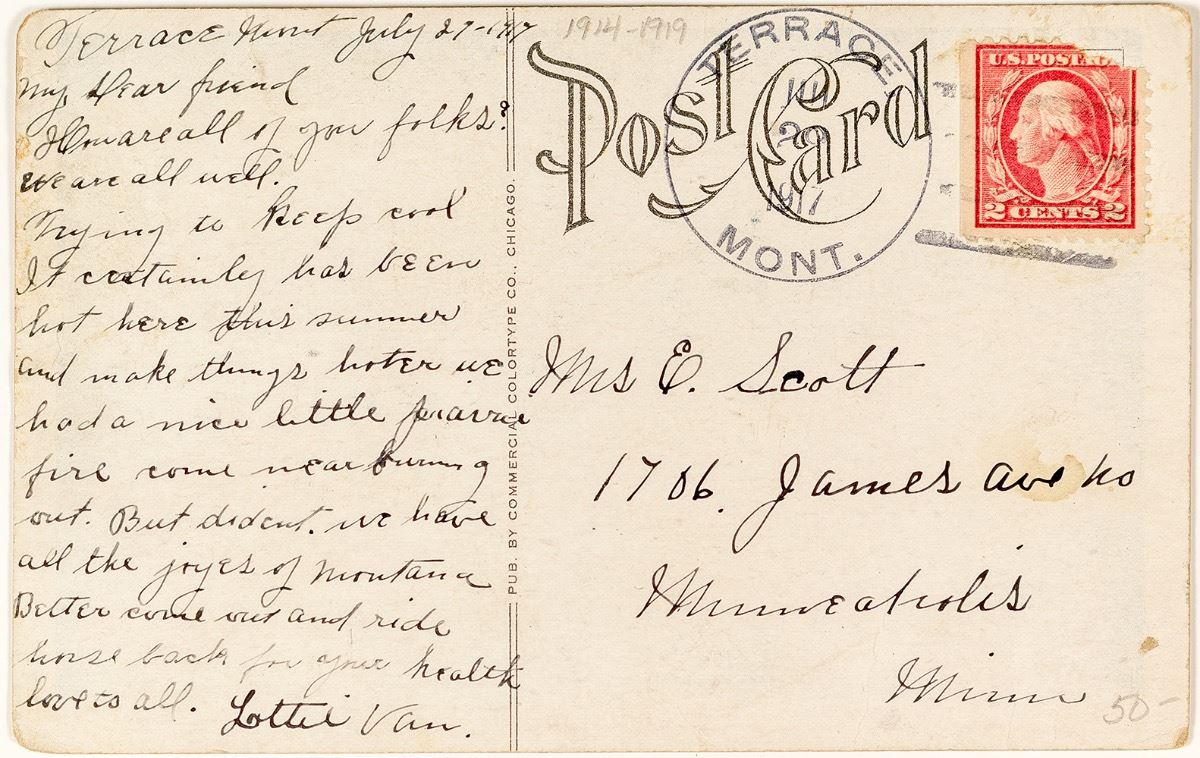 Terrace Mont July 27-1917
My Dear friend
How are all of your folks?
we are all well.
Trying to keep cool
It certainly has been
hot here this summer
and make things hoter we
had a nice little prairie
fire come near burning
out. But dident. we have
all the joyes of Montana
Better come out and ride
horse back for your health
love to all. Lottie Van.
PUB. BY COMMERCIAL COLORTYPE CO., CHICAGO.
1914-1919
Post Card
TERRACE
JUL
1917
MONT.
U.S. POSTAG
2 CENTS 2
Mrs E. Scott
1706 James ave no
Minneapolis
Minn
50-